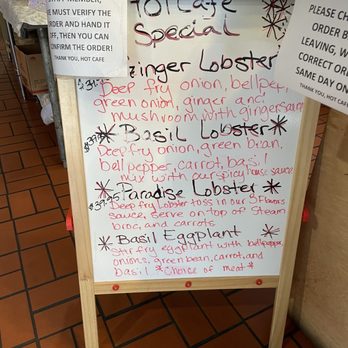 MEMBER,
MUST VERIFY THE
ORDER AND HAND IT
OFF, THEN YOU CAN
CONFIRM THE ORDER!
THANK YOU, HOT CAFE
PLEASE CH
ORDER B
LEAVING, W
CORRECT OR
SAME DAY ON
THANK YOU, HOT
Hot Cafe
Special
Ginger Lobster
Deep fry onion, bellpep
green onion, ginger and
mushroom with ginger
* Basil Lobster *
Deep fry onion, green bean,
bell pepper, carrot, basil
mix with our spicy house sauce
* Paradise Lobster *
Deep fry Lobster toss in our 3 Flavors
sauce, serve on top of Steam
broc, and carrots
* Basil Eggplant *
stir fry eggplant with bellpepper,
onions, green bean, carrot, and
basil * Choice of meat *